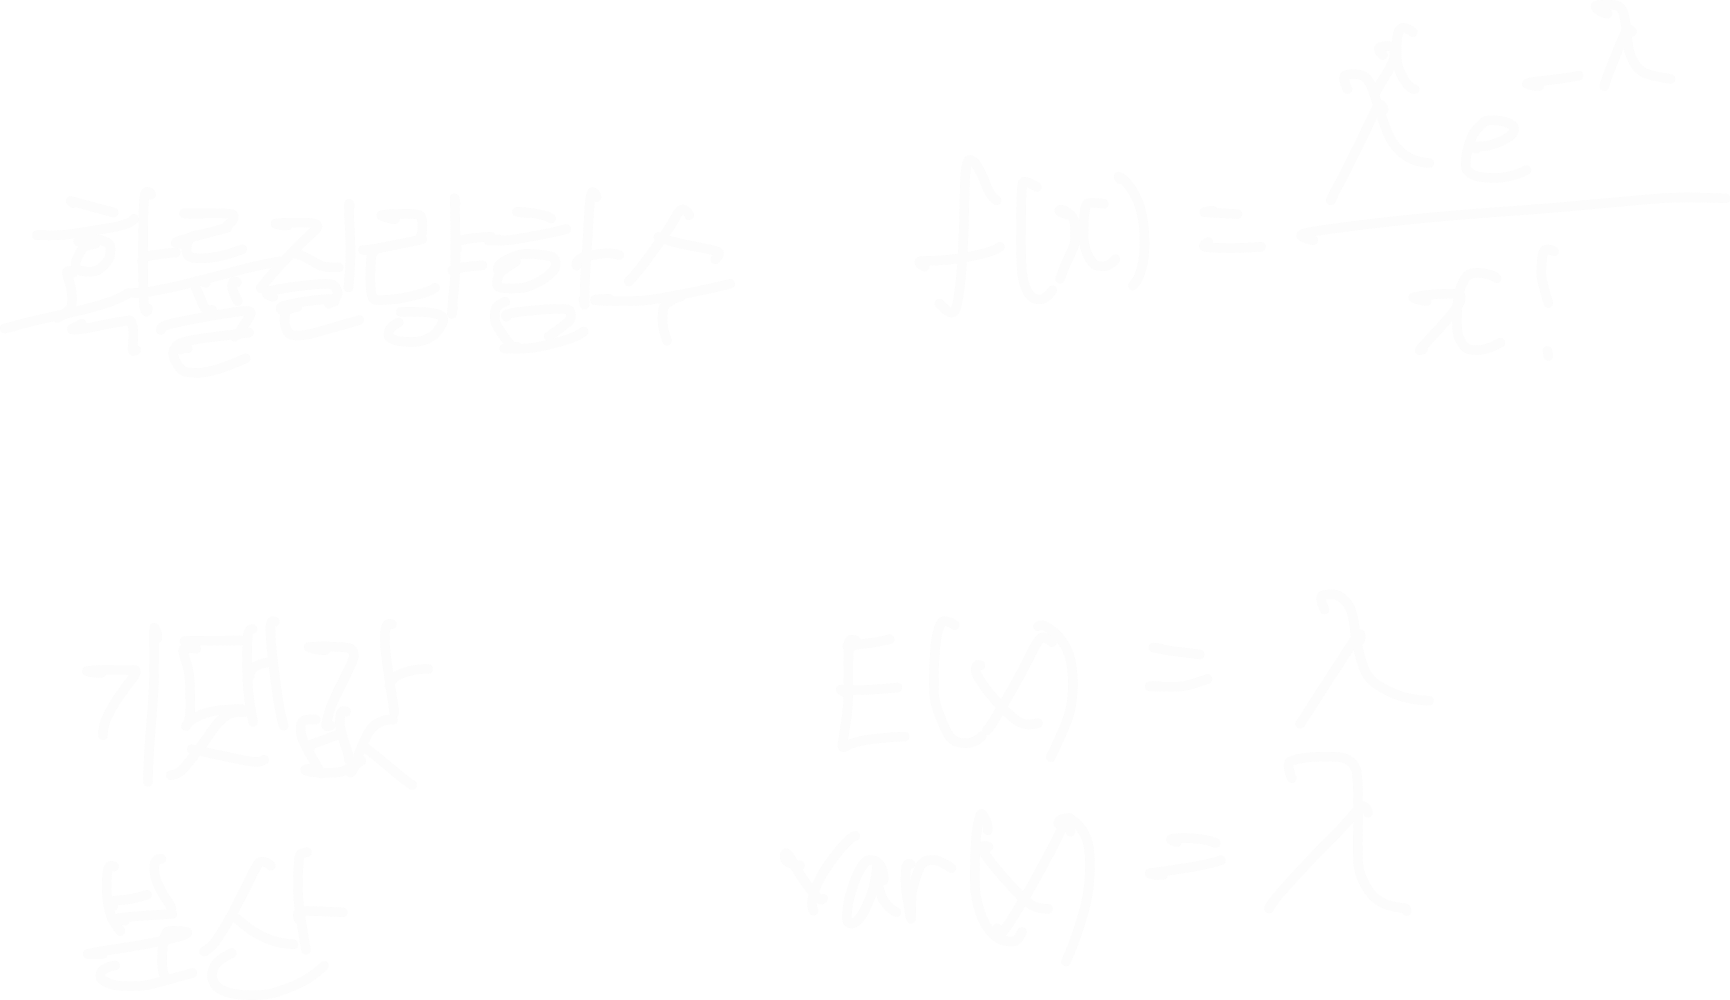 확률질량함수 f(x) = \frac{λ^x e^{-λ}}{x!}
기댓값 E(x) = λ
분산 var(x) = λ